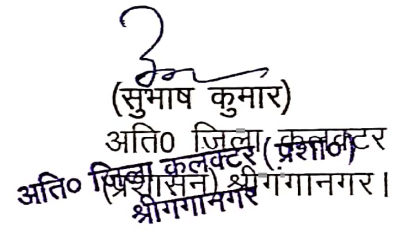 (सुभाष कुमार)
अति० जिला कलक्टर
(प्रशासन) श्रीगंगानगर।
अति० जिला कलक्टर (प्रशा०)
श्रीगंगानगर